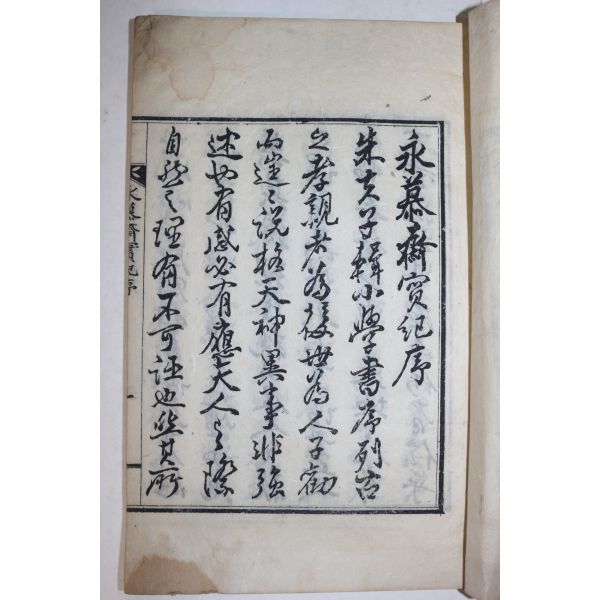 永慕齋實紀序
朱夫子輯小學書序列古
之孝親者為後世為人子勸
而籩之說格天神異事非強
述也有感必有應天人之際
自然之理有不可誣也然其所
永慕齋實紀序